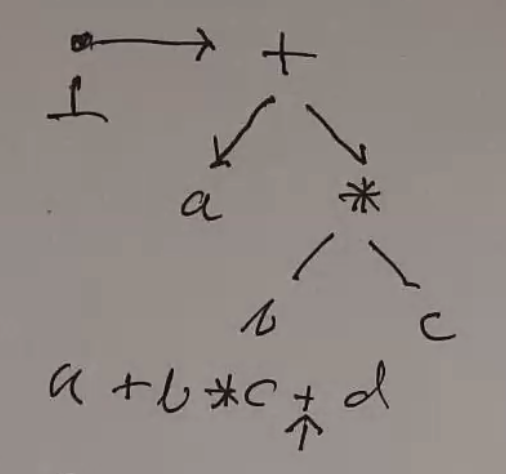 +
a *
b c
a + b * c + d